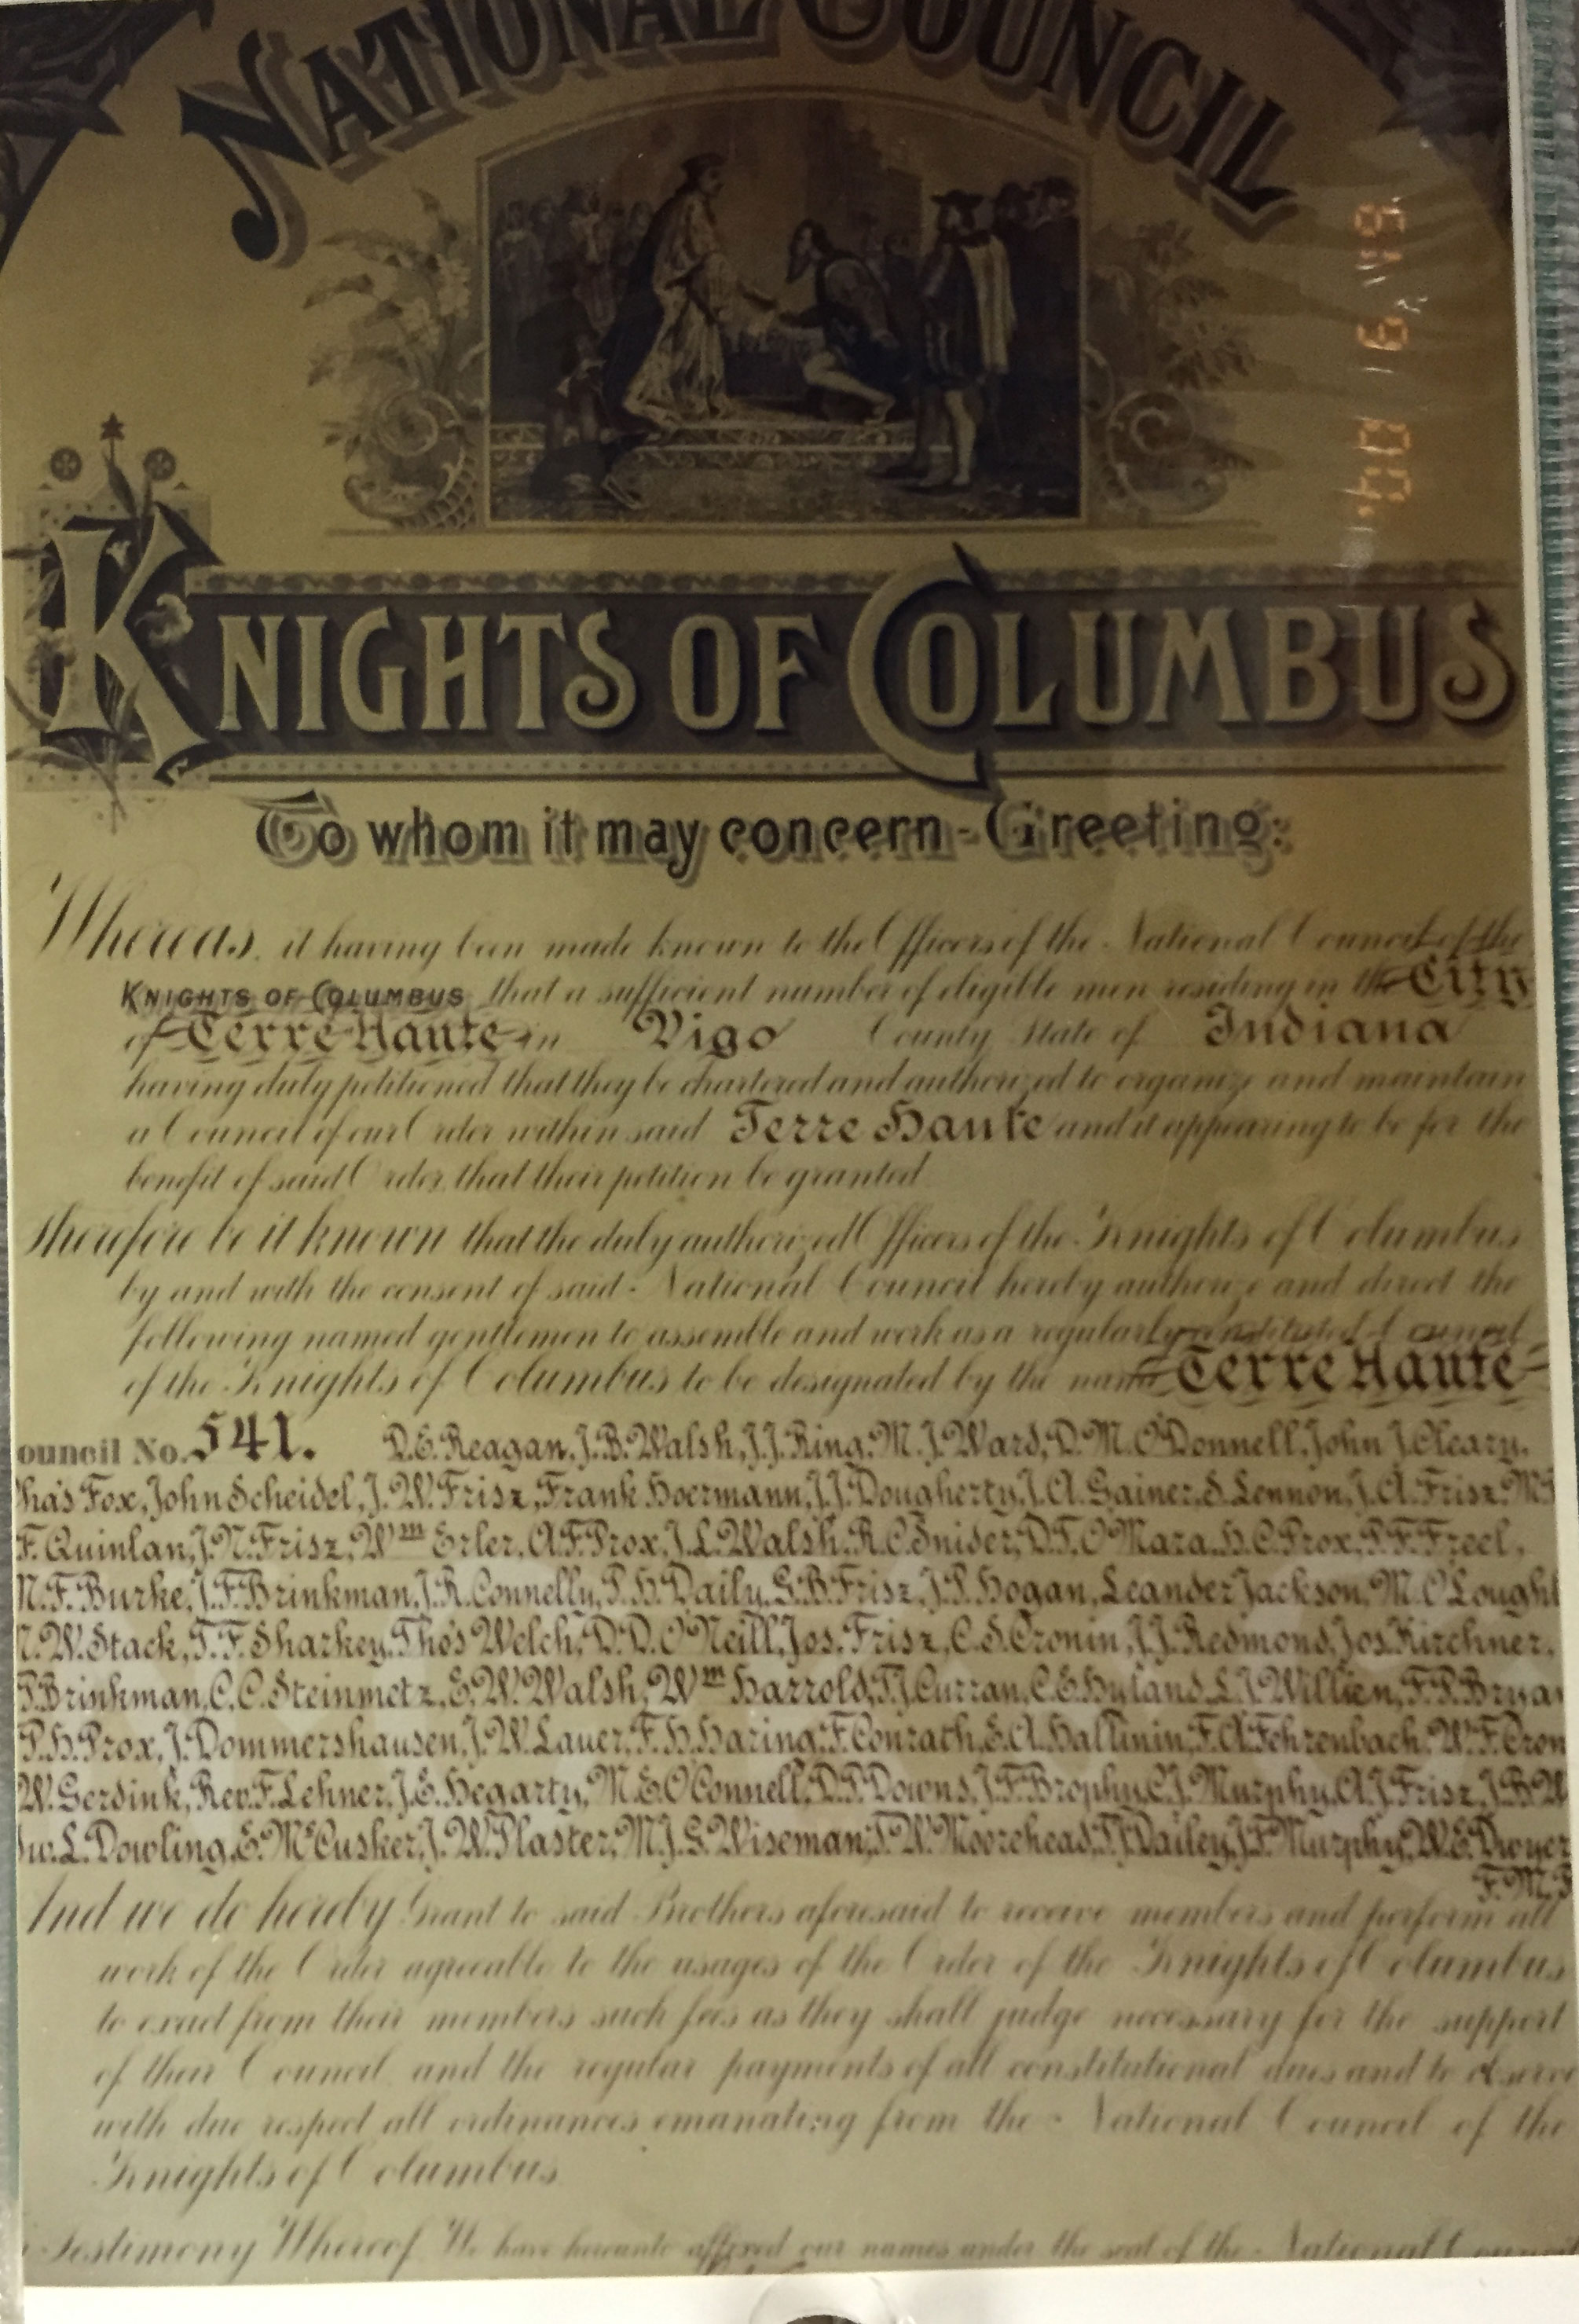 NATIONAL COUNCIL
KNIGHTS OF COLUMBUS
To whom it may concern - Greeting:
Whereas, it having been made known to the Officers of the National Council of the
KNIGHTS OF COLUMBUS that a sufficient number of eligible men residing in the City
of Terre Haute in Vigo County State of Indiana
having duly petitioned that they be chartered and authorized to organize and maintain
a Council of our Order within said Terre Haute and it appearing to be for the
benefit of said Order, that their petition be granted
Therefore be it known that the duly authorized Officers of the Knights of Columbus
by and with the consent of said National Council hereby authorize and direct the
following named gentlemen to assemble and work as a regularly constituted Council
of the Knights of Columbus to be designated by the name Terre Haute
ouncil No. 541. D.E. Reagan, J.B. Walsh, J.J. Ring, M.J. Ward, D.M. O'Donnell, John J. Cleary,
has Fox, John Scheidel, J.W. Frisz, Frank Hoermann, J.J. Dougherty, J.A. Gainer, S. Lennon, J.A. Frisz,
F. Quinlan, J.N. Frisz, Wm Erler, A.F. Prox, J.L. Walsh, R.C. Snider, D.T. O'Mara, H.C. Prox, P.F. Freel,
N.F. Burke, J.F. Brinkman, J.R. Connelly, P.H. Daily, G.B. Frisz, J.P. Hogan, Leander Jackson, M. O'Lough
W. Stack, T.F. Sharkey, Thos Welch, D.D. O'Neill, Jos. Frisz, C.S. Cronin, J.J. Redmond, Jos. Kirchner,
Brinkman, C.C. Steinmetz, E.W. Walsh, Wm Harrold, T.J. Curran, C.E. Hyland, L.J. Willien, F.P. Brya
P.H. Prox, J. Dommershausen, J.W. Lauer, F.H. Haring, F. Conrath, E.A. Hallinin, F.A. Fehrenbach, W.F. Cron
W. Gerdink, Rev. F. Lehner, J.E. Hegarty, M.E. O'Connell, D.P. Downs, J.F. Brophy, C.J. Murphy, A.J. Frisz, J.B. W
w. L. Dowling, E. McCusker, J.W. Plaster, M.J.G. Wiseman, T.W. Moorehead, T.J. Dailey, J.F. Murphy, W.E. Dwyer
F.M.
And we do hereby Grant to said Brothers aforesaid to receive members and perform all
work of the Order agreeable to the usages of the Order of the Knights of Columbus
to exact from their members such fees as they shall judge necessary for the support
of their Council, and the regular payments of all constitutional dues and to observe
with due respect all ordinances emanating from the National Council of the
Knights of Columbus
Testimony Whereof We have hereunto affixed our names under the seal of the National Council